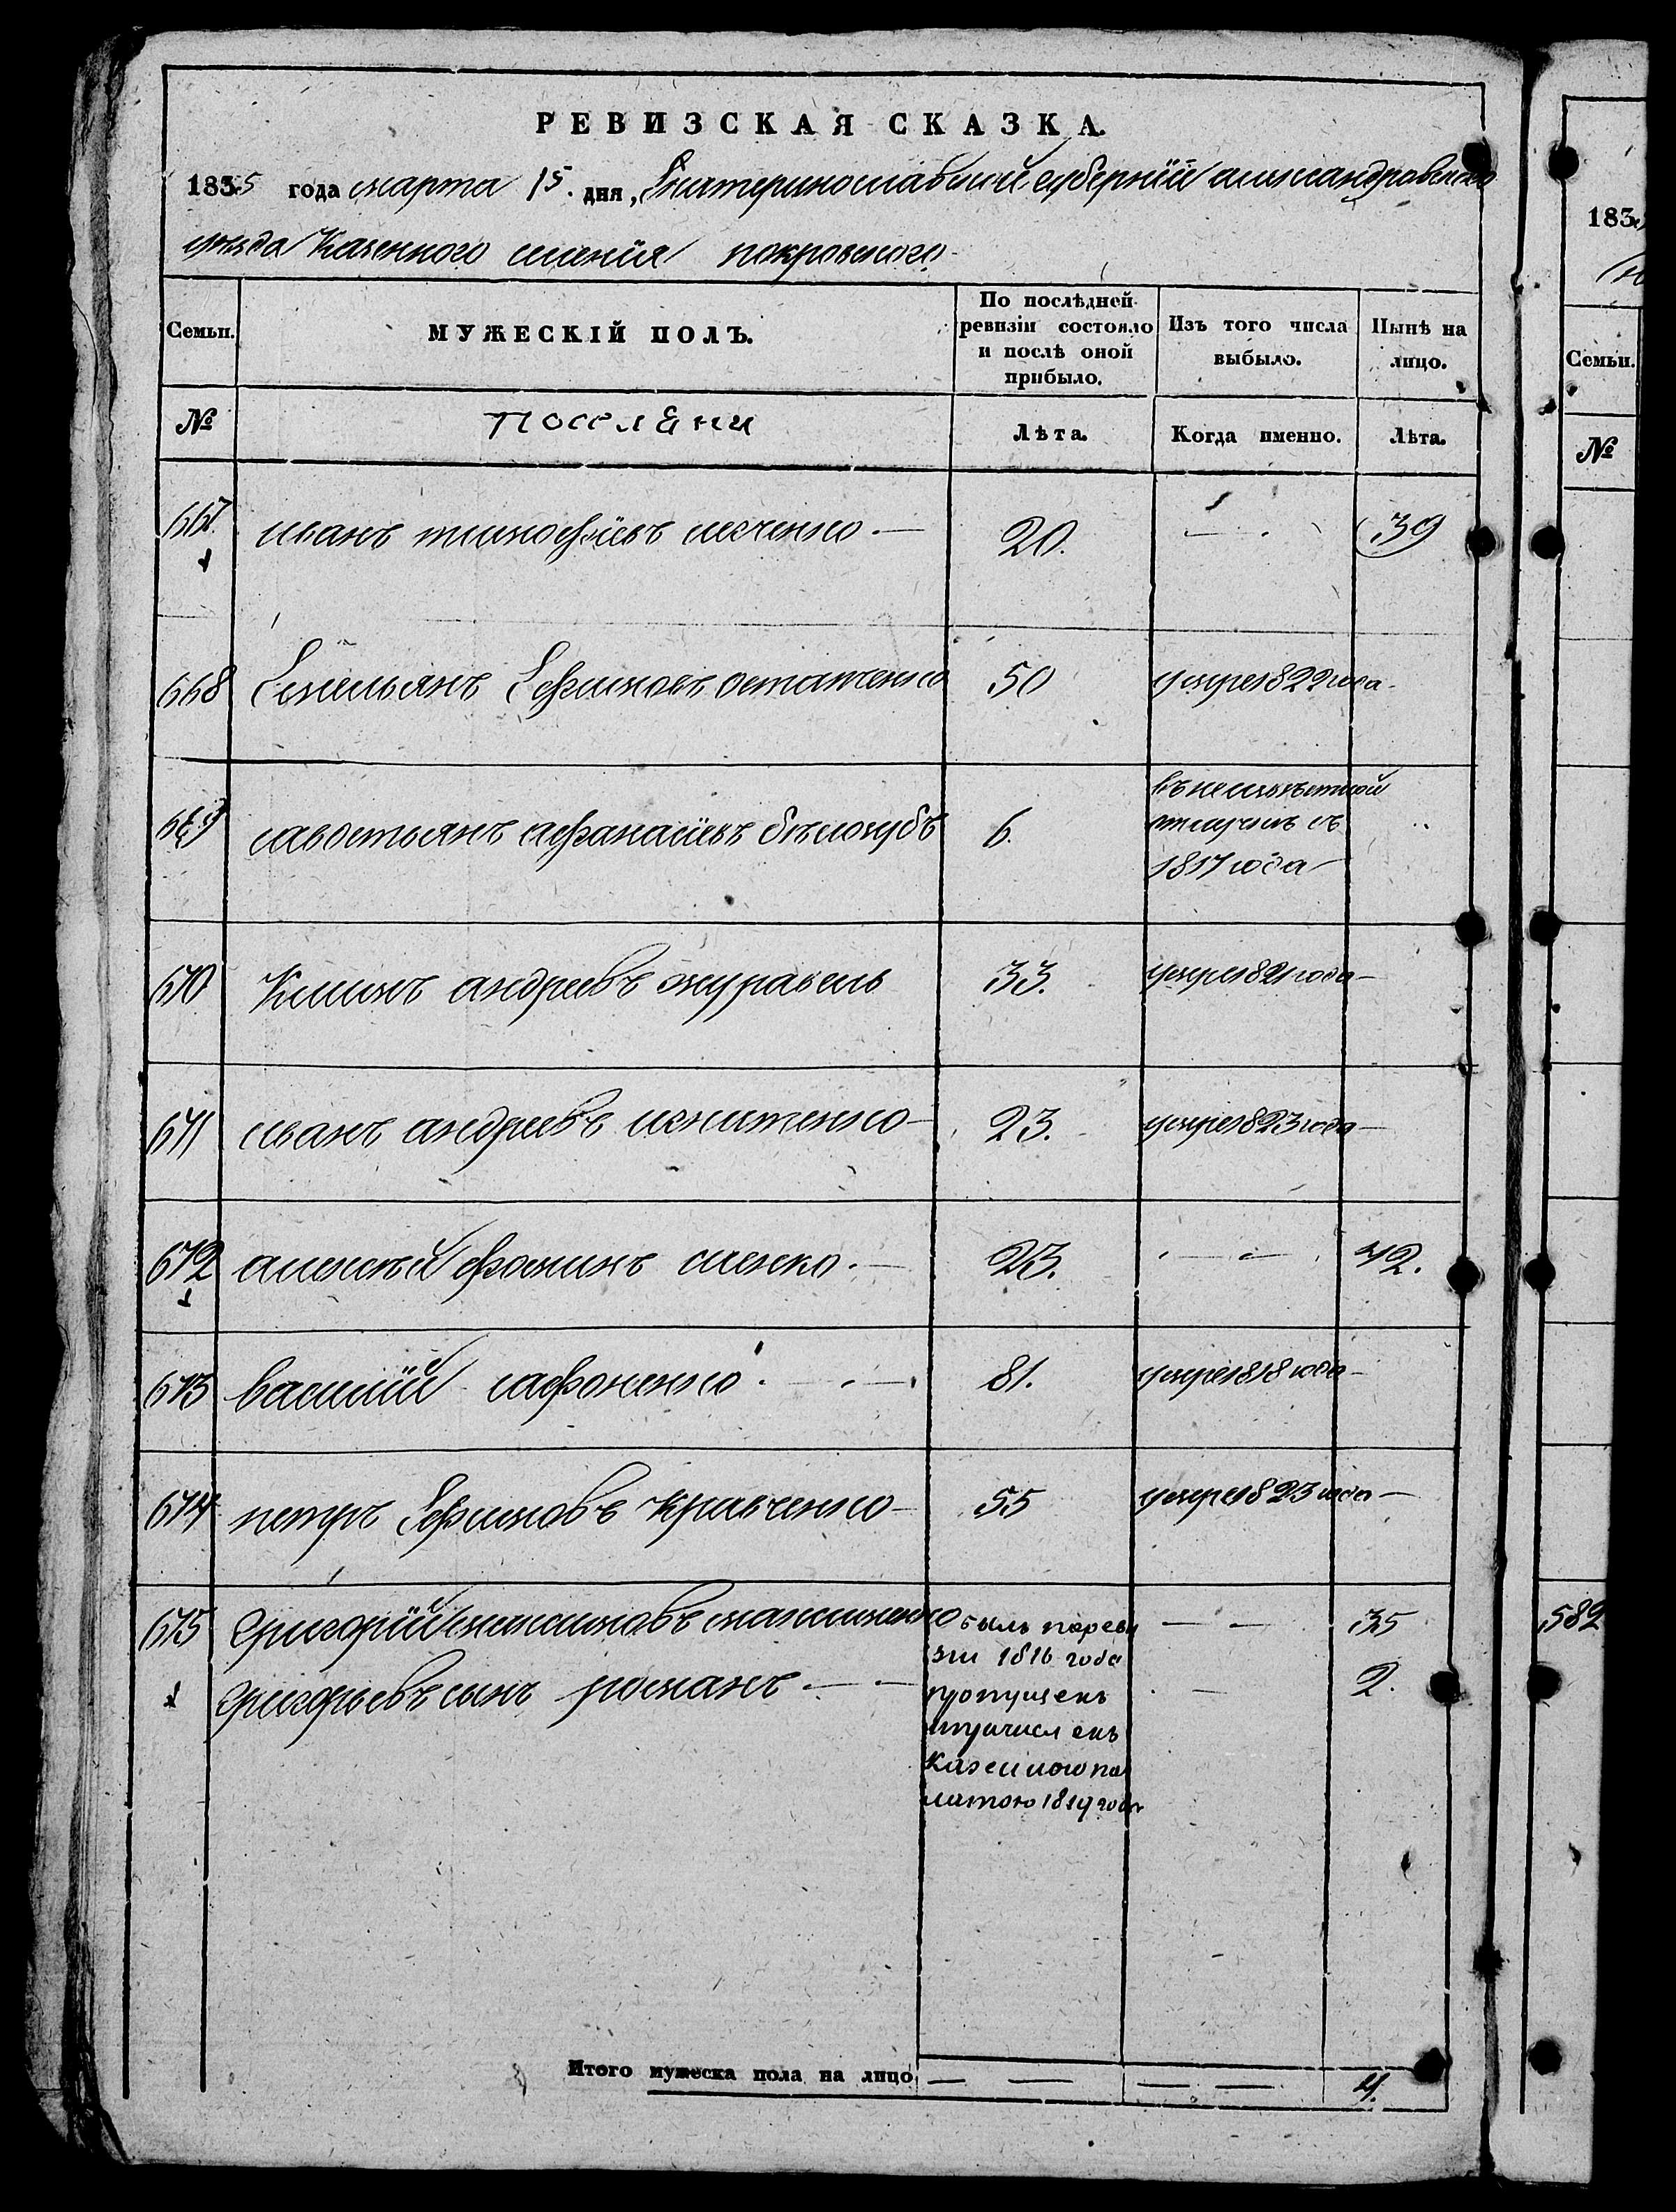 РЕВИЗСКАЯ СКАЗКА.
1835 года марта 15. дня, Екатеринославской губернїи александровского
уезда Казенного имения покровского
Семьи. МУЖЕСКІЙ ПОЛЪ. По послѣдней ревизіи состояло и послѣ оной прибыло. Изъ того числа выбыло. Нынѣ на лицо.
№ поселяни Лѣта. Когда именно. Лѣта.
667 иванъ тимофѣевъ 20. — 39
668 Емельянъ Ефимовъ остапенко 50 умре 1822 года
669 савостьянъ афанасіевъ бѣлозубъ 6. въ неизвѣстной отлучкѣ съ 1817 года
670 Климъ андреевъ журавель 33. умре 1821 года
671 иванъ андреевъ игнатенко 23. умре 1823 года
672 алексѣй фоминъ 23. — 42.
673 василий сафоненко 81. умре 1818 года
674 петръ Ефимовъ Кравченко 55 умре 1823 года
675 григорїй максимовъ максименко былъ по реви — 35
зіи 1816 года
григорьевъ сынъ романъ пропущенъ — 2.
причисленъ
Казенною па
латою 1819 года
Итого мужеска пола на лицо — — — — 4.
183
Семьи.
№
582